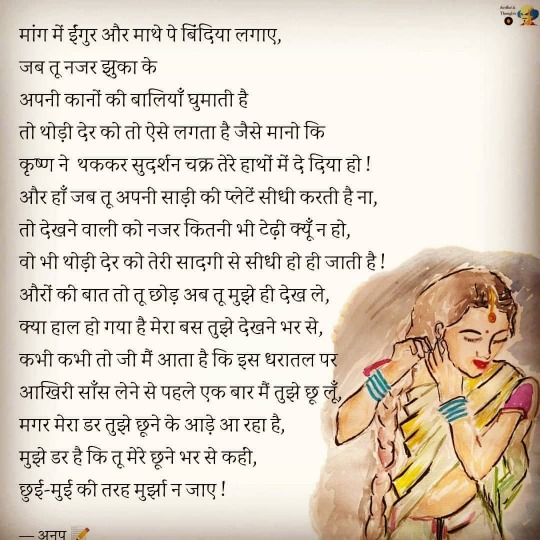 मांग में ईंगुर और माथे पे बिंदिया लगाए,
जब तू नजर झुका के
अपनी कानों की बालियाँ घुमाती है
तो थोड़ी देर को तो ऐसे लगता है जैसे मानो कि
कृष्ण ने थककर सुदर्शन चक्र तेरे हाथों में दे दिया हो !
और हाँ जब तू अपनी साड़ी की प्लेटें सीधी करती है ना,
तो देखने वाली को नजर कितनी भी टेढ़ी क्यूँ न हो,
वो भी थोड़ी देर को तेरी सादगी से सीधी हो ही जाती है !
औरों की बात तो तू छोड़ अब तू मुझे ही देख ले,
क्या हाल हो गया है मेरा बस तुझे देखने भर से,
कभी कभी तो जी मैं आता है कि इस धरातल पर
आखिरी साँस लेने से पहले एक बार मैं तुझे छू लूँ,
मगर मेरा डर तुझे छूने के आड़े आ रहा है,
मुझे डर है कि तू मेरे छूने भर से कहीं,
छुई-मुई की तरह मुर्झा न जाए !
— अनूप